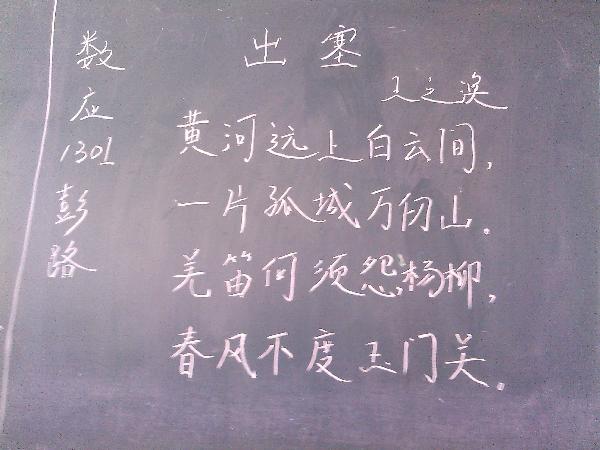 出塞
王之涣
黄河远上白云间，
一片孤城万仞山．
羌笛何须怨杨柳，
春风不度玉门关．
数应1301彭路